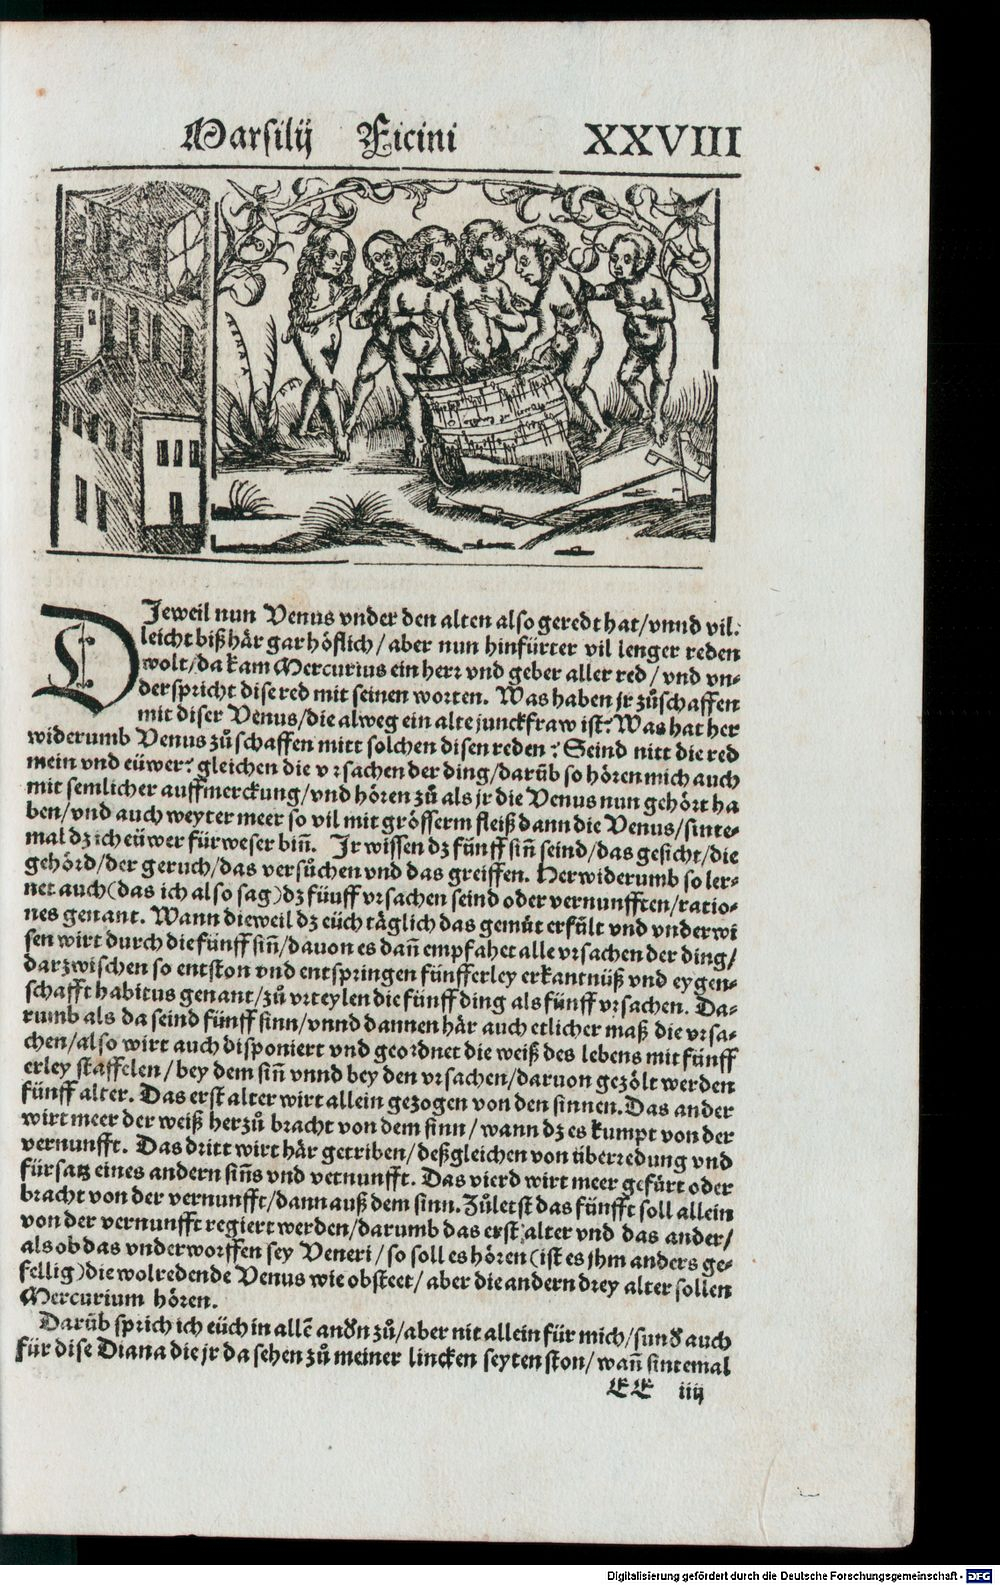 Marsilij Ficini XXVIII
DJeweil nun Venus vnder den alten also geredt hat/vnnd vil:
leicht bißhär gar höflich/aber nun hinfürter vil lenger reden
wolt/da kam Mercurius ein herr vnd geber aller red/vnd vn-
derspricht dise red mit seinen worten. Was haben jr zůschaffen
mit diser Venus/die alweg ein alte junckfraw ist? Was hat her
widerumb Venus zůschaffen mitt solchen disen reden? Seind nitt die red
mein vnd eüwer? gleichen die vrsachen der ding/darūb so hören mich auch
mit semlicher auffmerckung/vnd hören zů als jr die Venus nun gehört ha
ben/vnd auch weyter meer so vil mit grösserm fleiß dann die Venus/sinte-
mal dz ich eüwer fürweser biñ. Jr wissen dz fünff siñ seind/das gesicht/die
gehörd/der geruch/das versůchen vnd das greiffen. Herwiderumb so ler-
net auch(das ich also sag)dz füuff vrsachen seind oder vernunfften/ratio-
nes genant. Wann dieweil dz eüch täglich das gemüt erfült vnd vnderwi
sen wirt durch die fünff siñ/dauon es dañ empfahet alle vrsachen der ding/
darzwischen so entston vnd entspringen fünfferley erkantnüß vnd eygen-
schafft habitus genant/zů vrteylen die fünff ding als fünff vrsachen. Da-
rumb als da seind fünff sinn/vnnd dannen här auch etlicher maß die vrsa-
chen/also wirt auch disponiert vnd geordnet die weiß des lebens mit fünff
erley staffelen/bey dem siñ vnnd bey den vrsachen/daruon gezölt werden
fünff alter. Das erst alter wirt allein gezogen von den sinnen. Das ander
wirt meer der weiß herzů bracht von dem sinn/wann dz es kumpt von der
vernunfft. Das dritt wirt här getriben/deßgleichen von überredung vnd
fürsatz eines andern siñs vnd vetnunfft. Das vierd wirt meer gefürt oder
bracht von der vernunfft/dann auß dem sinn. Zůletst das fünfft soll allein
von der vernunfft regiert werden/darumb das erst alter vnd das ander/
als ob das vnderworffen sey Veneri/so soll es hören(ist es jhm anders ge-
fellig)die wolredende Venus wie obsteet/aber die andern drey alter sollen
Mercurium hören.
Darūb sprich ich eüch in allē andn zů/aber nit allein für mich/sund auch
für dise Diana die jr da sehen zů meiner lincken seyten ston/wañ sintemal
EE iiij
Digitalisierung gefördert durch die Deutsche Forschungsgemeinschaft - DFG